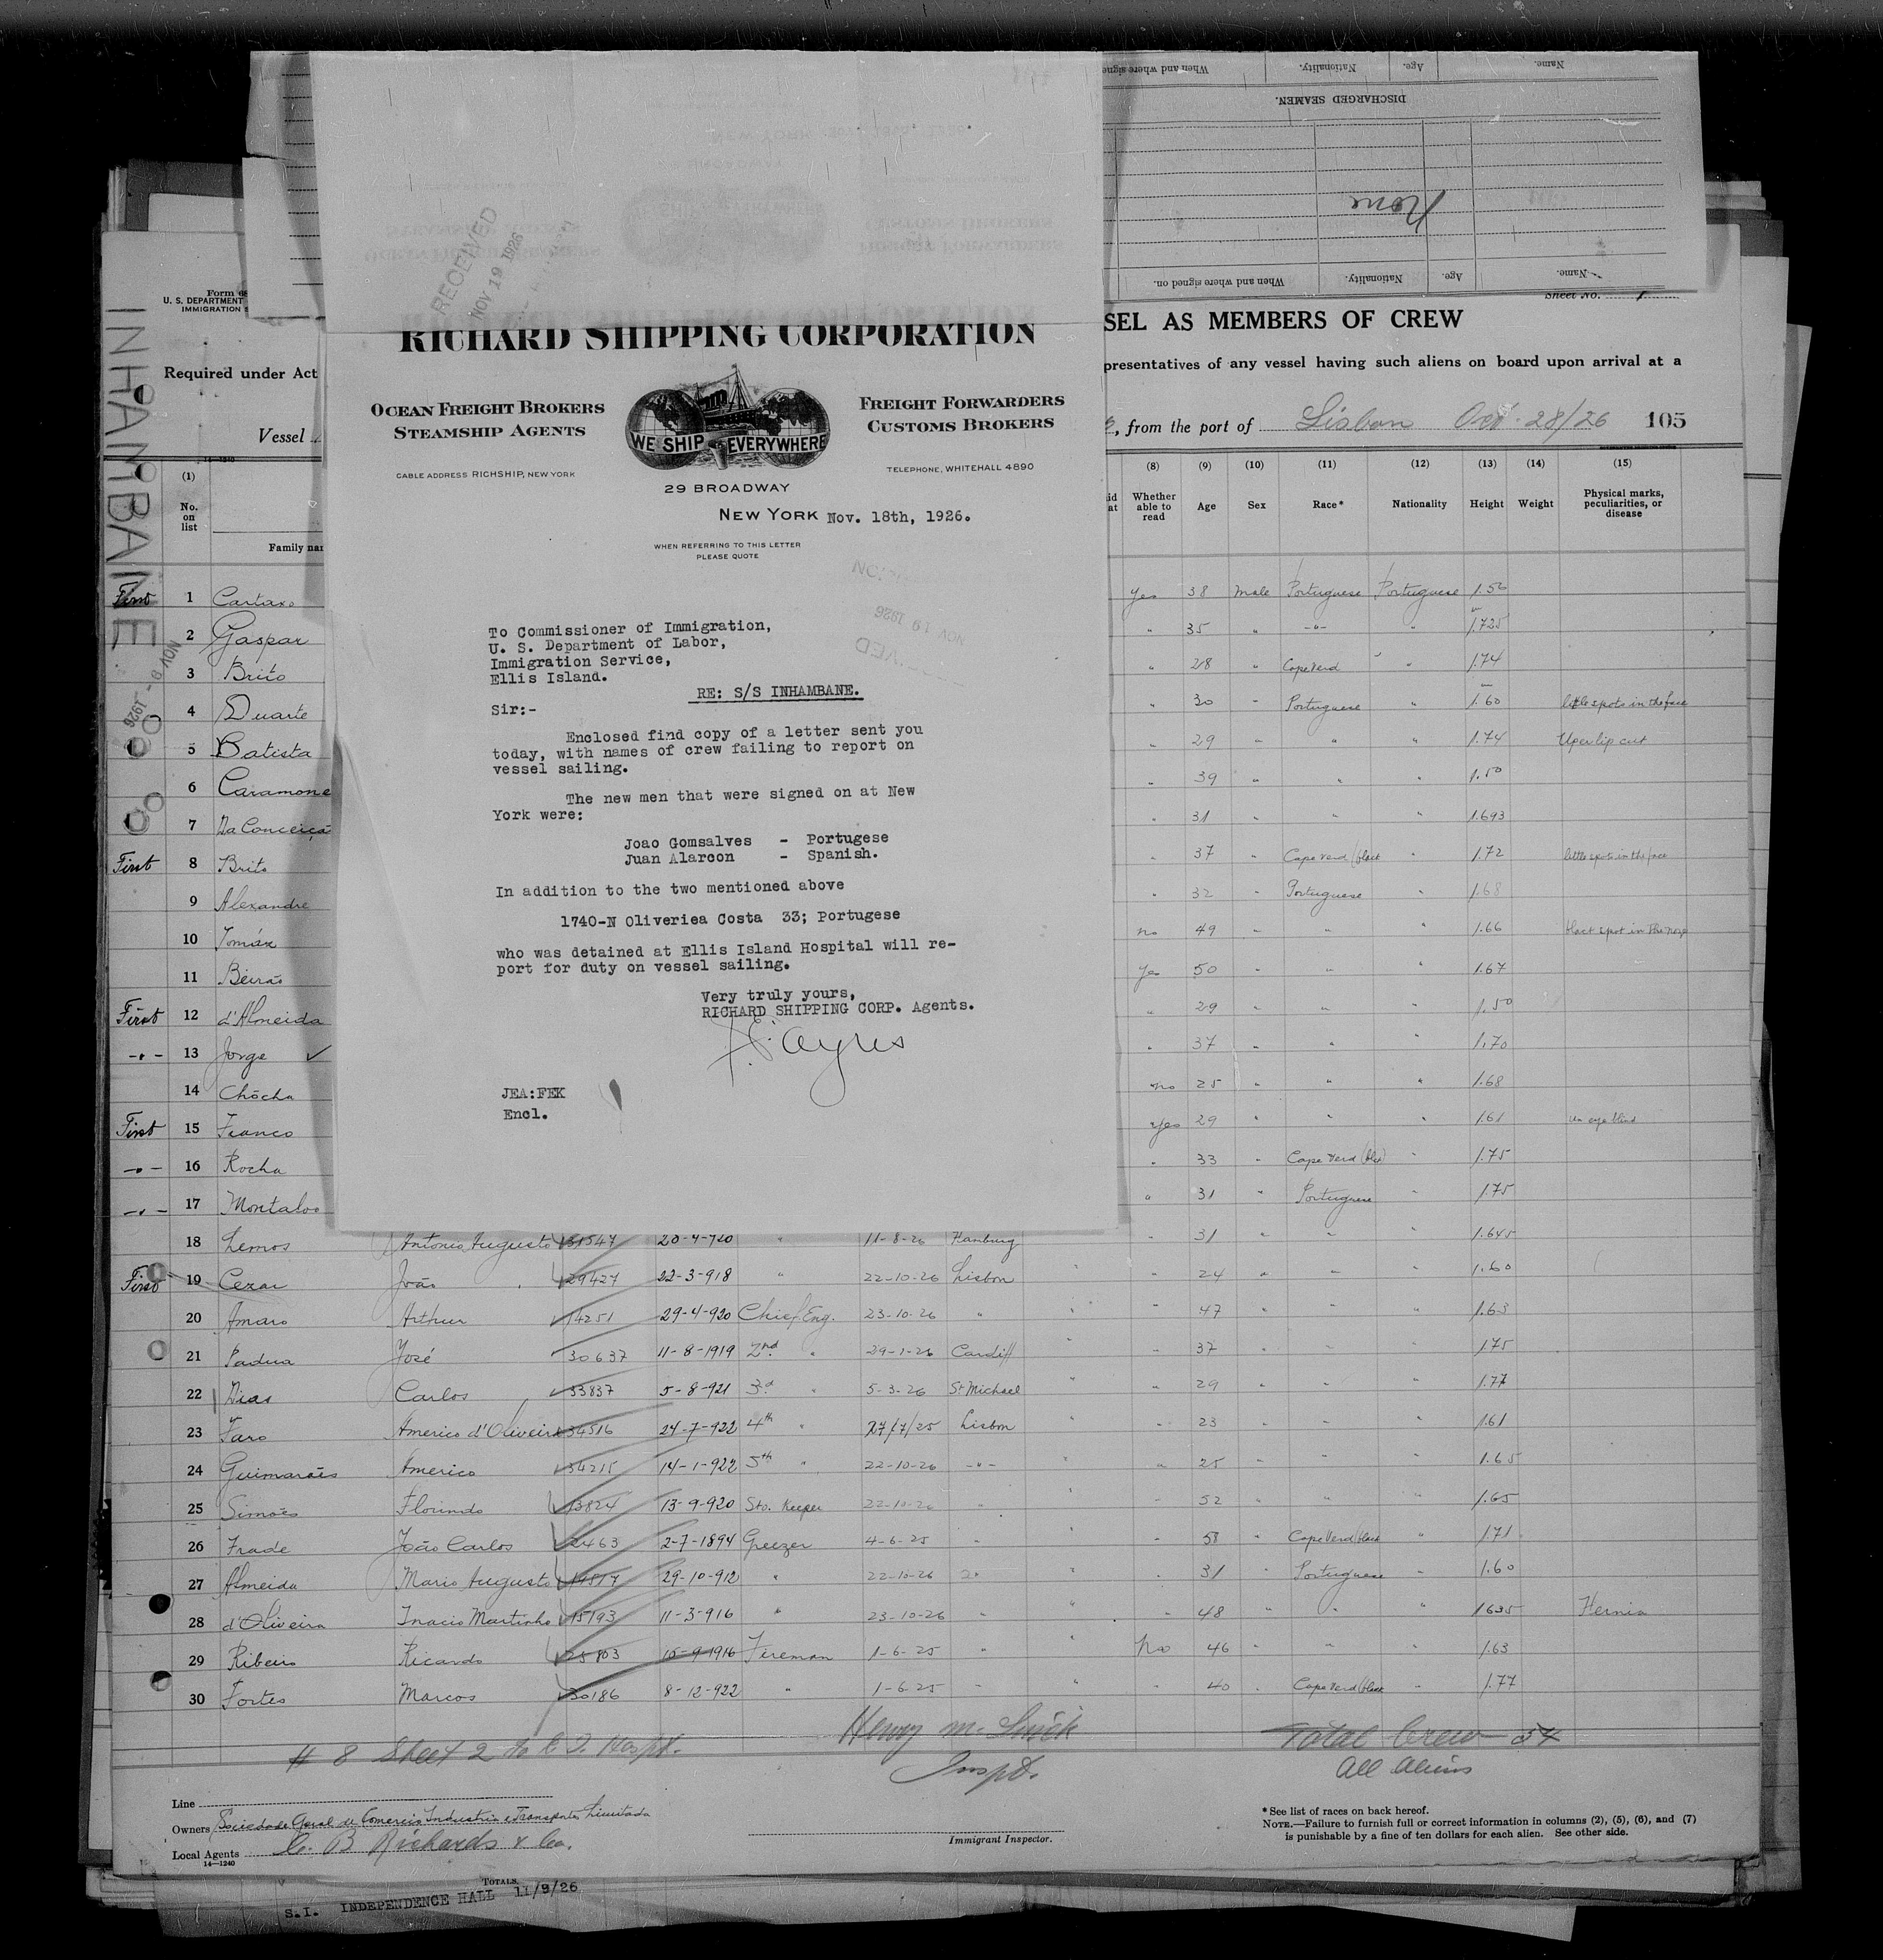 When and where signed on.
Nationality.
Age.
Name.
DISCHARGED SEAMEN.
None
When and where signed on.
Nationality.
Age.
Name.
RECEIVED
NOV 19 1926
Form 68
U. S. DEPARTMENT
IMMIGRATION S
Sheet No. 1
SEL AS MEMBERS OF CREW
Required under Act
presentatives of any vessel having such aliens on board upon arrival at a
Vessel
, from the port of Lisbon Oct. 28/26 105
INHAMBANE
NOV 9 - 1926
RICHARD SHIPPING CORPORATION
OCEAN FREIGHT BROKERS
STEAMSHIP AGENTS
WE SHIP EVERYWHERE
FREIGHT FORWARDERS
CUSTOMS BROKERS
CABLE ADDRESS RICHSHIP, NEW YORK
TELEPHONE, WHITEHALL 4890
29 BROADWAY
NEW YORK Nov. 18th, 1926.
WHEN REFERRING TO THIS LETTER
PLEASE QUOTE
NOV 19 1926
To Commissioner of Immigration,
U. S. Department of Labor,
Immigration Service,
Ellis Island.
RE: S/S INHAMBANE.
Sir:-
Enclosed find copy of a letter sent you
today, with names of crew failing to report on
vessel sailing.
The new men that were signed on at New
York were:
Joao Gomsalves - Portugese
Juan Alarcon - Spanish.
In addition to the two mentioned above
1740-N Oliveriea Costa 33; Portugese
who was detained at Ellis Island Hospital will re-
port for duty on vessel sailing.
Very truly yours,
RICHARD SHIPPING CORP. Agents.
JEA:FEK
Encl.
14-1240
(1) (8) (9) (10) (11) (12) (13) (14) (15)
No. on list
Family nar
Whether able to read
Age
Sex
Race*
Nationality
Height
Weight
Physical marks, peculiarities, or disease
First 1 Cartaxo Yes 38 Male Portuguese Portuguese 1.56
2 Gaspar " 35 " -"- " 1.725
3 Brito " 28 " Cape Verd " 1.74
4 Duarte " 30 " Portuguese " 1.60 little spots in the face
5 Batista " 29 " " " 1.74 Uper lip cut
6 Caramone " 39 " " " 1.50
7 Da Conceiçã " 31 " " " 1.693
First 8 Brito " 37 " Cape Verd (black " 1.72 little spots in the face
9 Alexandre " 32 " Portuguese " 1.68
10 Tomáz no 49 " " " 1.66 black spot in the nose
11 Beirão Yes 50 " " 1.67
First 12 d'Almeida " 29 " " " 1.50
-"- 13 Jorge " 37 " " " 1.70
14 Chócha no 25 " " " 1.68
First 15 Franco Yes 29 " " " 1.61 un eye blind
-"- 16 Rocha " 33 " Cape Verd (blk) " 1.75
-"- 17 Montalvo " 31 " Portuguese " 1.75
18 Lemos Antonio Augusto 31547 20-4-920 " 11-8-26 Hamburg " 31 " " 1.645
First 19 Cezar João 29427 22-3-918 " 22-10-26 Lisbon " " 24 " " " 1.60
20 Amaro Arthur 14251 29-4-920 Chief Eng. 23-10-26 " " " 47 " " " 1.63
21 Padua José 30637 11-8-1919 2nd " 29-1-26 Cardiff " " 37 " " " 1.75
22 Dias Carlos 33837 5-8-921 3d " 5-3-26 St Michael " " 29 " " " 1.77
23 Faro Americo d'Oliveira 34516 24-7-922 4th " 27/7/25 Lisbon " " 23 " " " 1.61
24 Guimarães Americo 34215 14-1-922 5th " 22-10-26 -"- " " 25 " " " 1.65
25 Simões Florindo 13824 13-9-920 Sto. Keeper 22-10-26 " " " 52 " " " 1.65
26 Frade João Carlos 2463 2-7-1894 Greezer 4-6-25 " " " 58 " Cape Verd (black " 1.71
27 Almeida Mario Augusto 29-10-912 " 22-10-26 " " 31 " Portuguese " 1.60
28 d'Oliveira Inacio Martinho 15193 11-3-916 " 23-10-26 " " " 48 " " " 1635 Hernia
29 Ribeiro Ricardo 25803 15-9-1916 Fireman 1-6-25 " " No 46 " " " 1.63
30 Fortes Marcos 30186 8-12-922 " 1-6-25 " " " 40 " Cape Verd (black " 1.77
# 8 Sheet 2 to E I. Hospt.
Henry M.
Inspt.
Total Crew 54
All Aliens
Line
Owners Sociedade Geral de Comercio Industria e Transportes Limitada
Local Agents C. B Richards & Co.
14-1240
Immigrant Inspector.
* See list of races on back hereof.
NOTE.—Failure to furnish full or correct information in columns (2), (5), (6), and (7)
is punishable by a fine of ten dollars for each alien. See other side.
TOTALS.
S.I. INDEPENDENCE HALL 11/9/26